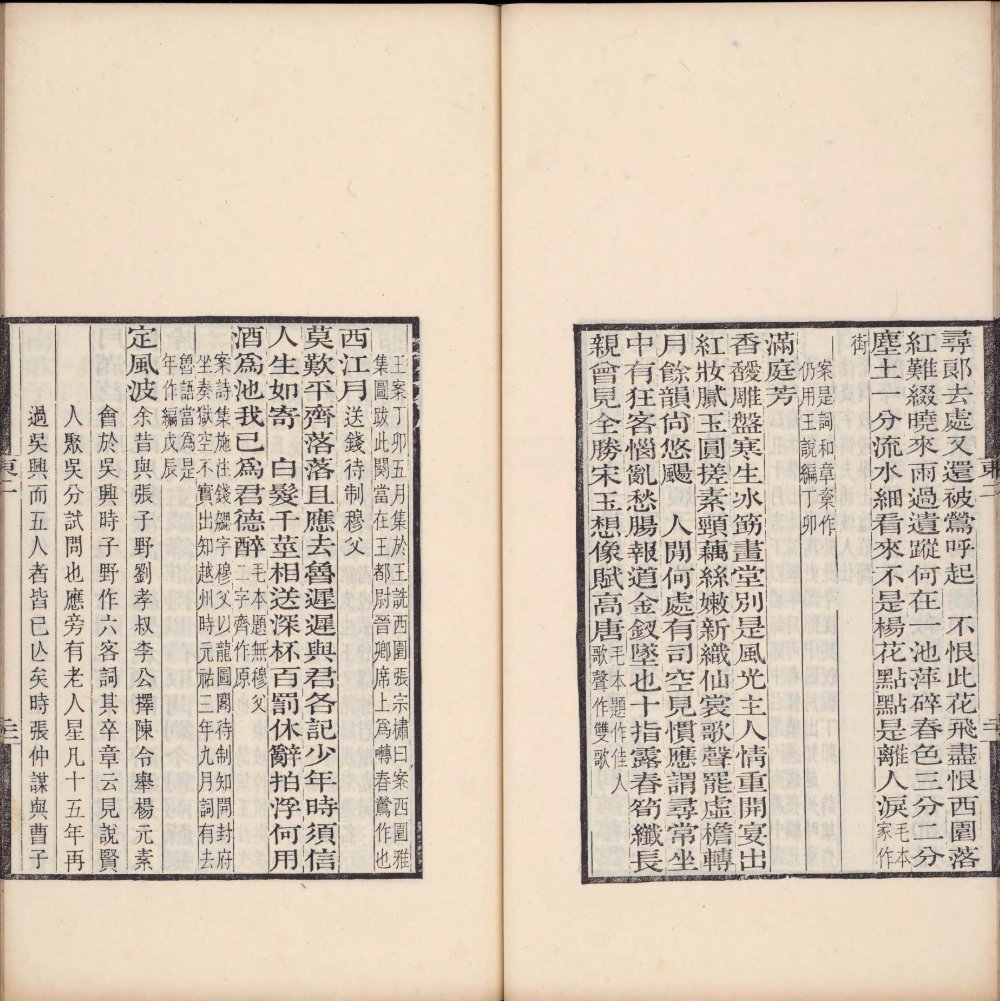 尋郎去處又還被鶯呼起　不恨此花飛盡恨西園落
紅難綴曉來雨過遺蹤何在一池萍碎春色三分二分
塵土一分流水細看來不是楊花點點是離人淚毛本
家作
街
案是詞和章楶作
仍用王說編丁卯
滿庭芳
香靉雕盤寒生冰筯畫堂別是風光主人情重開宴出
紅妝膩玉圓搓素頸藕絲嫩新織仙裳歌聲罷虛檐轉
月餘韻尚悠颺　人閒何處有司空見慣應謂尋常坐
中有狂客惱亂愁腸報道金釵墜也十指露春筍纖長
親曾見全勝宋玉想像賦高唐毛本題作佳人
歌聲作雙歌
東二
王案丁卯五月集於王詵西園張宗橚曰案西園雅
集圖跋此闋當在王都尉晉卿席上為囀春鶯作也
西江月送錢待制穆父
莫歎平齊落落且應去魯遲遲與君各記少年時須信
人生如寄　白髮千莖相送深杯百罰休辭拍浮何用
酒爲池我已爲君德醉毛本題無穆父
二字齊作原
案詩集施注錢勰字穆父以龍圖閣待制知開封府
坐奏獄空不實出知越州時元祐三年九月詞有去
魯語當爲是
年作編戊辰
定風波余昔與張子野劉孝叔李公擇陳令舉楊元素
會於吳興時子野作六客詞其卒章云見說賢
人聚吳分試問也應旁有老人星凡十五年再
過吳興而五人者皆已亾矣時張仲謀與曹子
東二